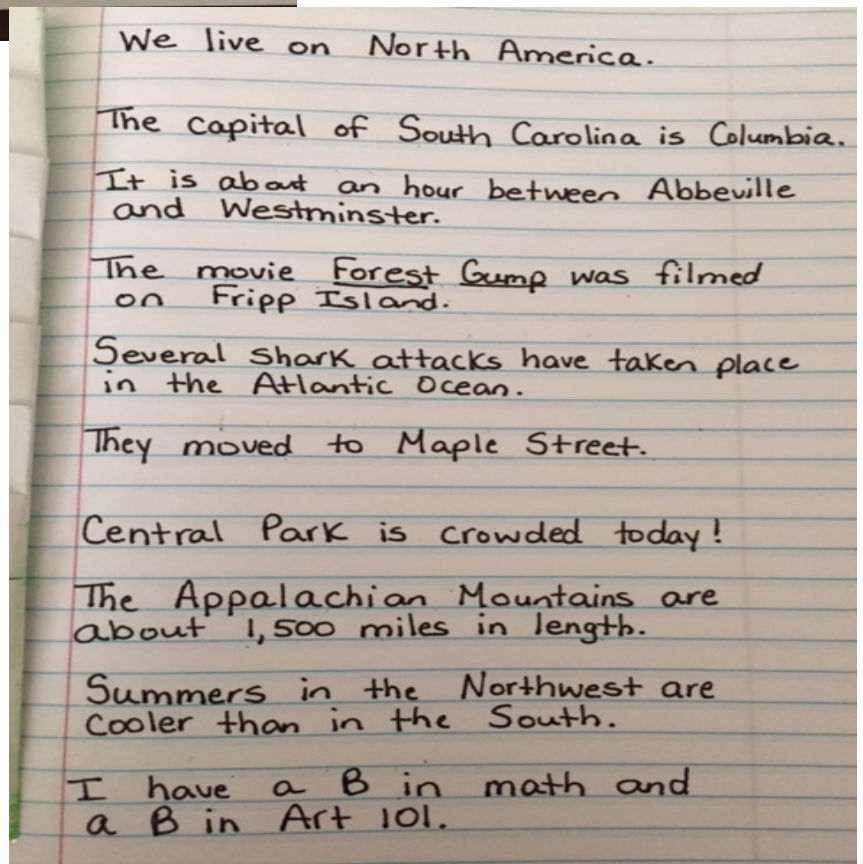 We live on North America.
The capital of South Carolina is Columbia.
It is about an hour between Abbeville
and Westminster.
The movie Forest Gump was filmed
on Fripp Island.
Several shark attacks have taken place
in the Atlantic Ocean.
They moved to Maple Street.
Central Park is crowded today!
The Appalachian Mountains are
about 1,500 miles in length.
Summers in the Northwest are
cooler than in the South.
I have a B in math and
a B in Art 101.